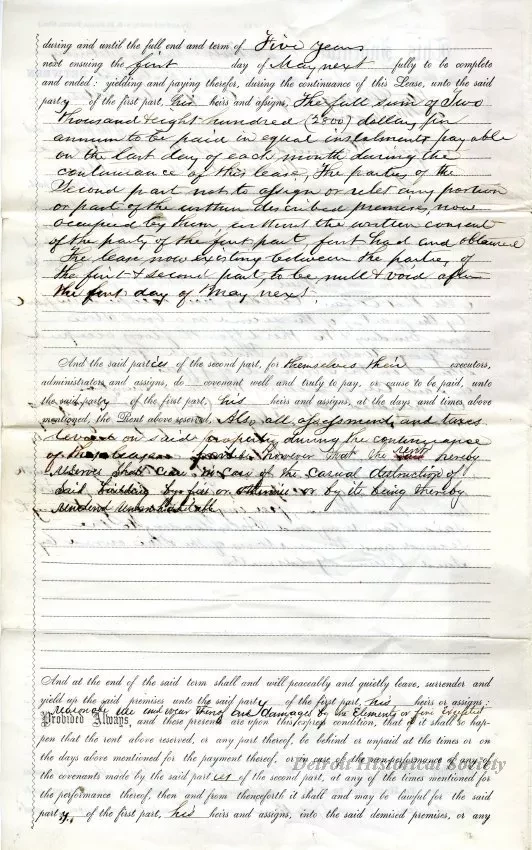 during and until the full end and term of Five years
next ensuing the first day of May next fully to be complete
and ended: yielding and paying therefor, during the continuance of this Lease, unto the said
party of the first part, his heirs and assigns, The full sum of Two
thousand & eight hundred (2800) dollars, per
annum to be paid in equal instalments payable
on the last day of each month during the
continuance of this lease, The parties of the
Second part not to assign or relet any portion
or part of the within described premises, now
occupied by them, without the written consent
of the party of the first part, first had and obtained
The lease now existing between the parties, of
the first & second part, to be null & void after
the first day of May next.
And the said parties of the second part, for themselves their executors,
administrators and assigns, do covenant well and truly to pay, or cause to be paid, unto
the said party of the first part, his heirs and assigns, at the days and times above
mentioned, the Rent above reserved, Also all assessments and taxes
levied on said property during the continuance
of however that the rent hereby
reserved shall cease in case of the casual destruction of
said building by fire or otherwise or by its being thereby
rendered untenantable
And at the end of the said term shall and will peaceably and quietly leave, surrender and
yield up the said premises unto the said party of the first part, his heirs or assigns:
reasonable use and wear thereof and damages by the Elements or fire Excepted
Provided Always, and these presents are upon this express condition, that if it shall so hap-
pen that the rent above reserved, or any part thereof, be behind or unpaid at the times or on
the days above mentioned for the payment thereof, or in case of the non-performance of any of
the covenants made by the said parties of the second part, at any of the times mentioned for
the performance thereof, then and from thenceforth it shall and may be lawful for the said
party, of the first part, his heirs and assigns, into the said demised premises, or any
Detroit Historical Society